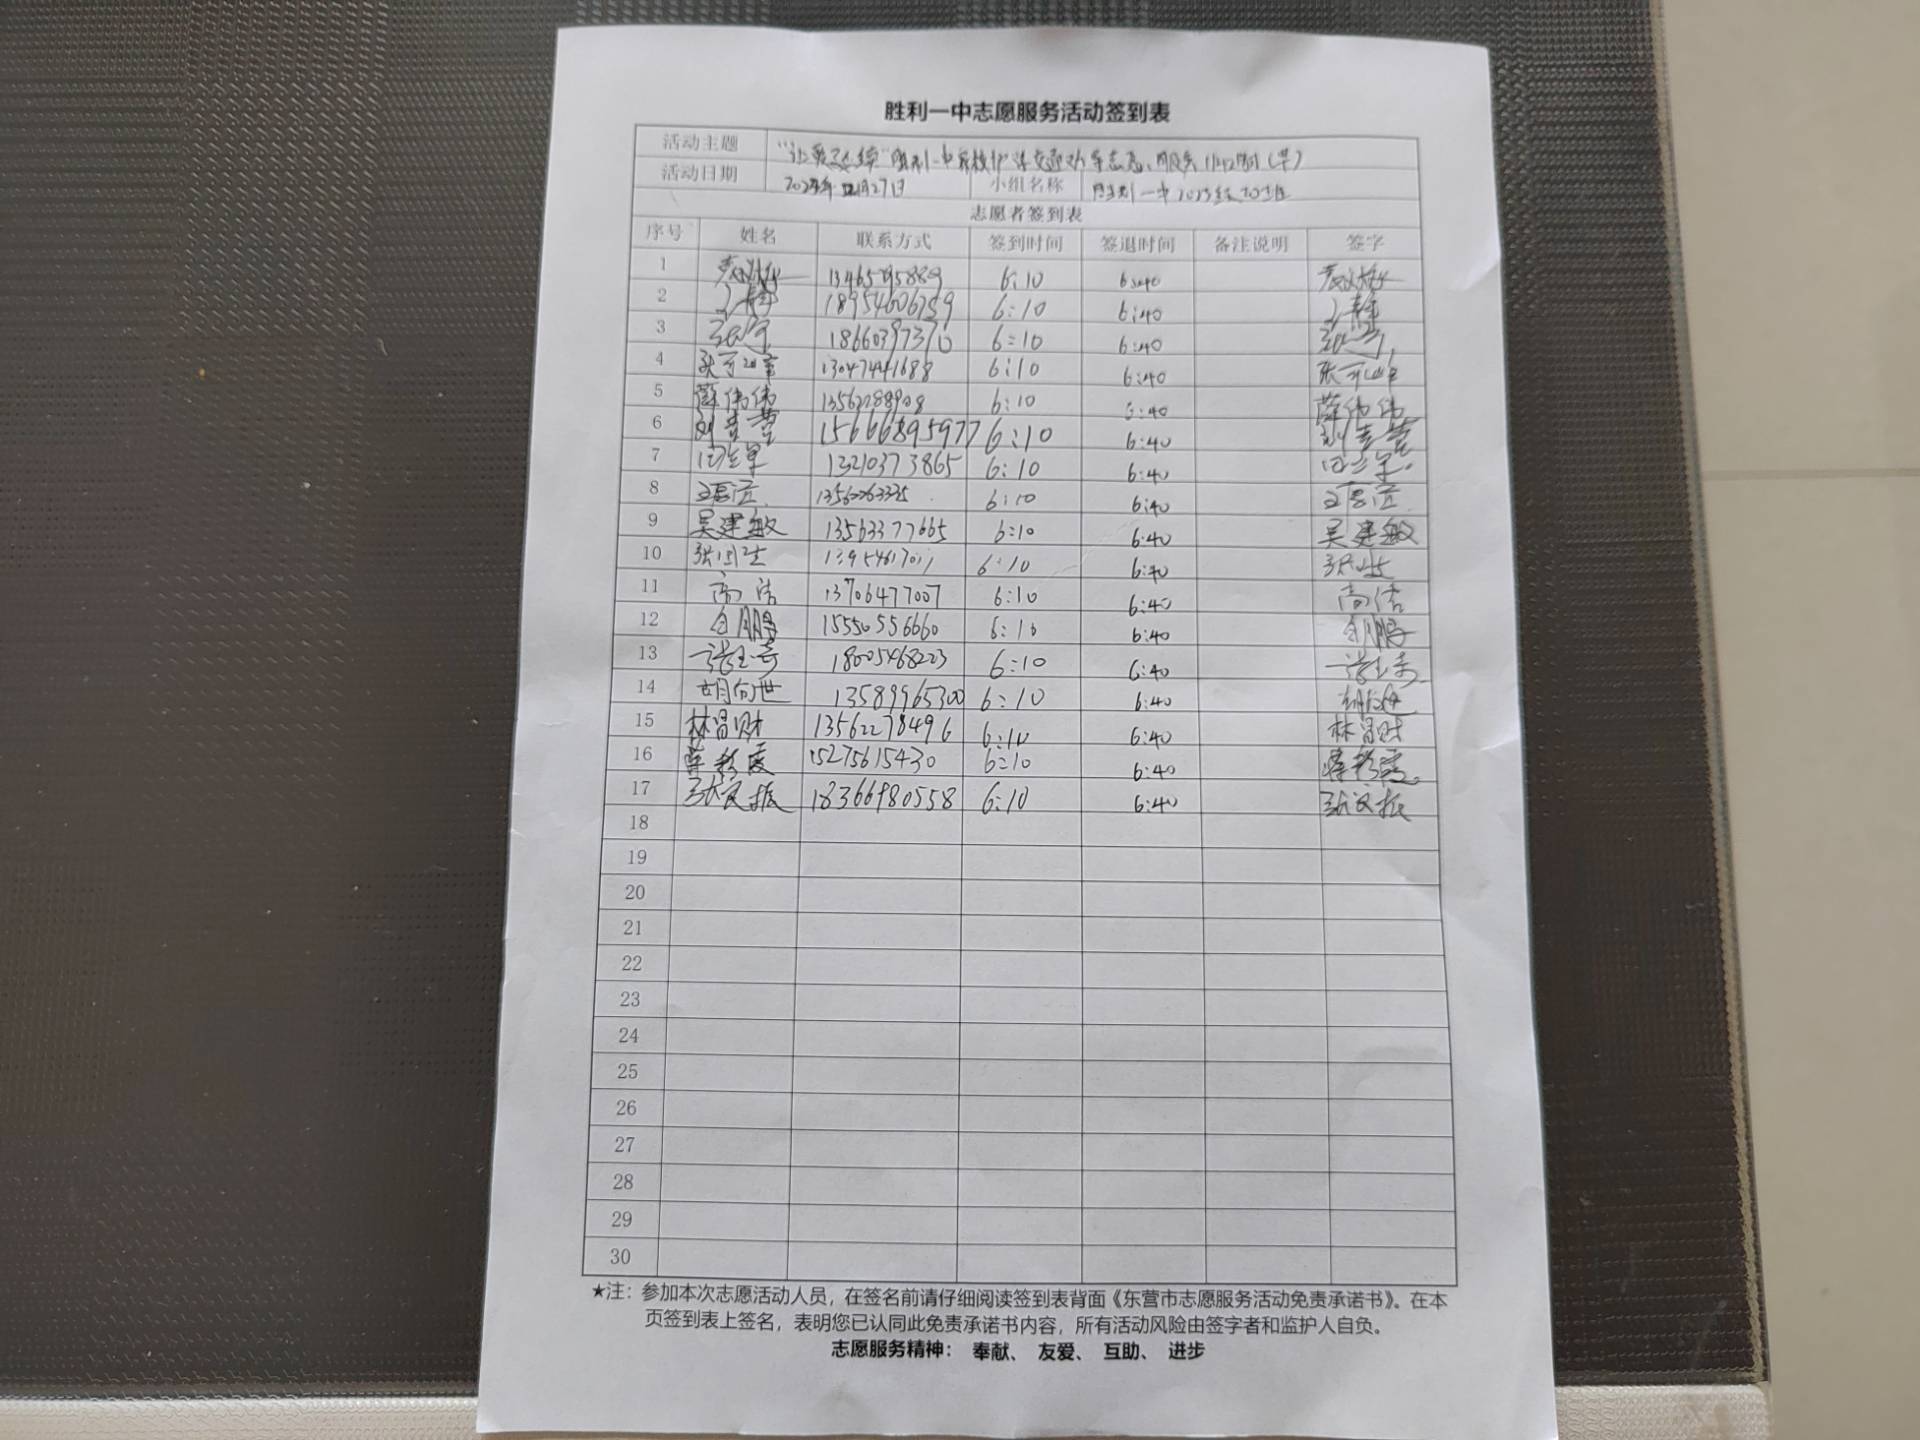 胜利一中志愿服务活动签到表
活动主题 "让爱延续"胜利一中家校护学交通劝导志愿服务 (早)
活动日期 27日 小组名称 胜利一中2023级20班
志愿者签到表
序号 姓名 联系方式 签到时间 签退时间 备注说明 签字
1 6:10 6:40
2 18954606759 6:10 6:40
3 18660397370 6:10 6:40
4 13047441688 6:10 6:40
5 薛伟伟 13562288908 6:10 6:40 薛伟伟
6 15666895977 6:10 6:40
7 田兰军 13210373865 6:10 6:40 田兰军
8 6:10 6:40
9 吴建敏 13563377665 6:10 6:40 吴建敏
10 6:10 6:40
11 高洁 13706477007 6:10 6:40 高洁
12 白鹏 15550556660 6:10 6:40 白鹏
13 18005468223 6:10 6:40
14 胡向世 13589965300 6:10 6:40
15 林昌财 13562278496 6:10 6:40 林昌财
16 15275615430 6:10 6:40
17 张文振 18366980558 6:10 6:40 张文振
18
19
20
21
22
23
24
25
26
27
28
29
30
★注：参加本次志愿活动人员，在签名前请仔细阅读签到表背面《东营市志愿服务活动免责承诺书》。在本
页签到表上签名，表明您已认同此免责承诺书内容，所有活动风险由签字者和监护人自负。
志愿服务精神： 奉献、 友爱、 互助、 进步